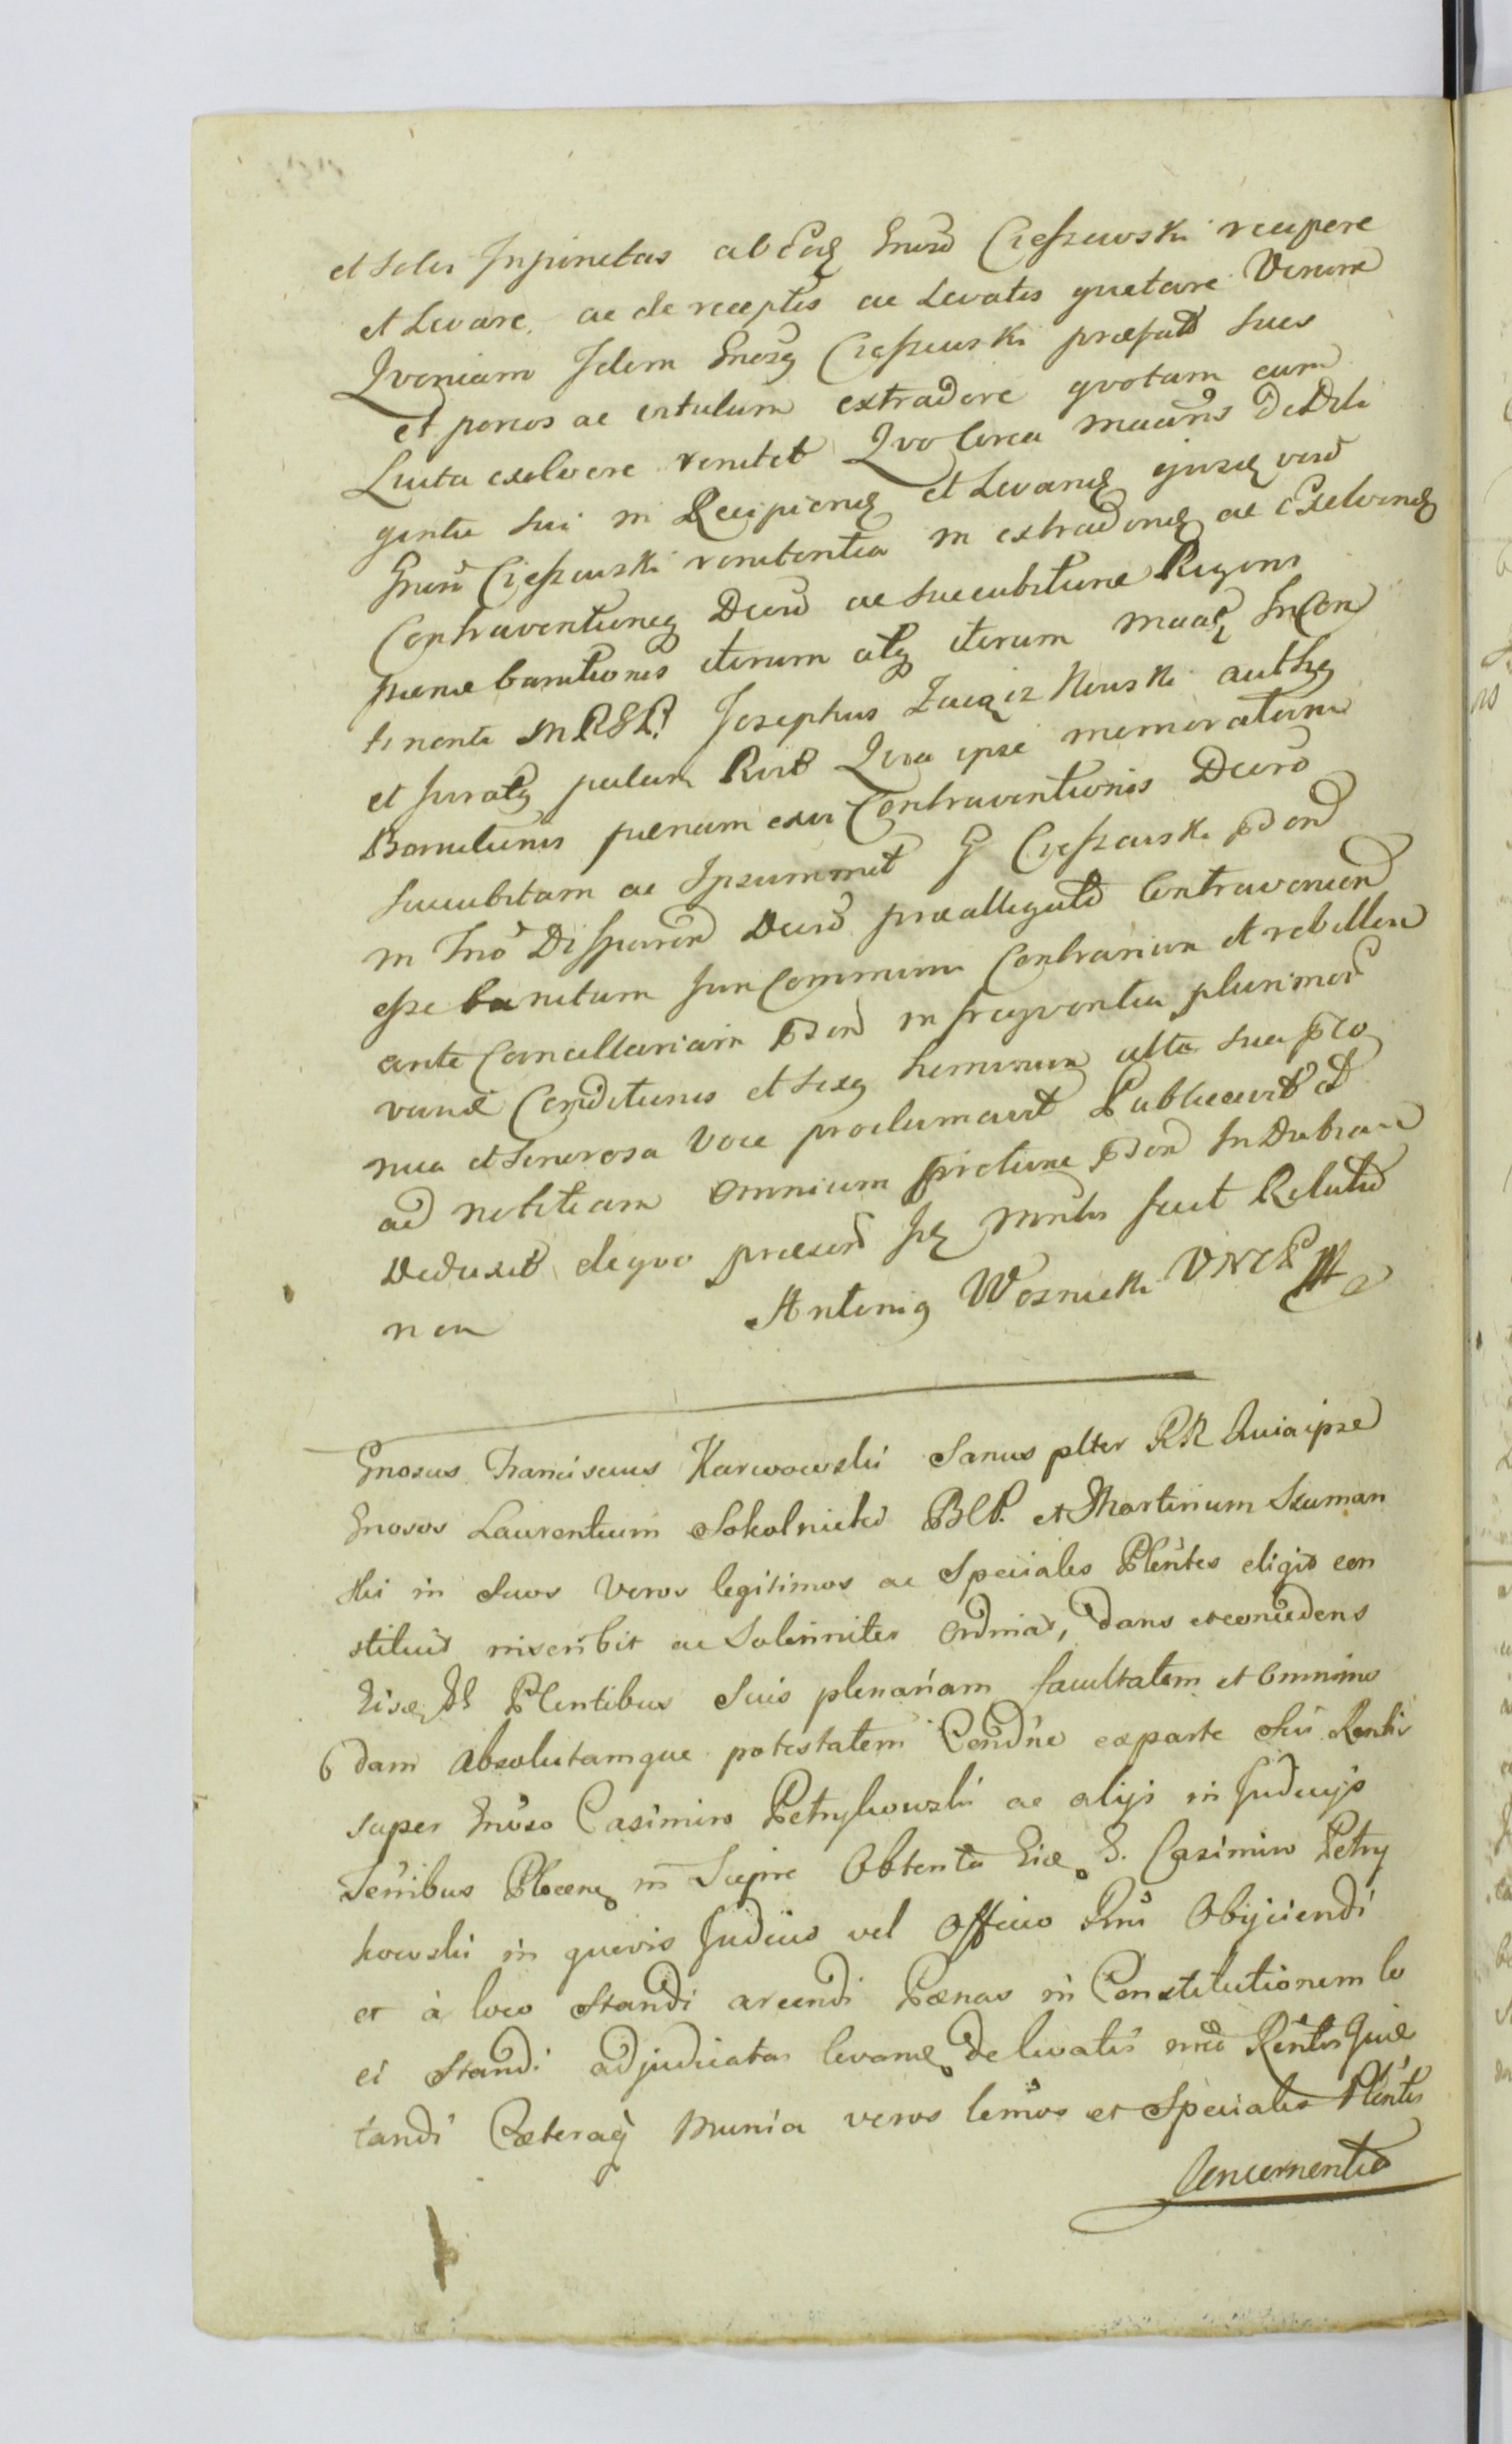 et solis Inpinctas ab eodq Gnoso Cieszewski recipere
et Levare, ac de receptis ac Levatis quetare Venire
Qvoniam Idem Gnosq Cieszewski præfatas sues
et porcos ac vitulum extradere qvotam eum
Luita exolvere renitet Qvo Circa maans de Dili
gentia sui in Recipiendq et Levandq ejusdq vero
Gnosi Cieszewski renitentia in extradendq ac Exolvendq
Contraventioneq Decreti ac succubitione Rigoris
pænæ banitionis iterum atq iterum maadq In Con
tinenti M.R.S.P. Josephus Zawiznowski authq
et Juratq palam Rcit Qvia ipse memoratam
Banitionis pænam ex vi Contraventionis Decreto
succubitam ac Ipsummet G Cieszewski
in Trno Disparen Decreto præallegato Contravenien
esse banitum Jur Communi Contrarium et rebellem
ante Cancellariam in freqventia plurimor
variæ Conditionis et sexq hominum alta sua
nua et sonorosa voce proclamavit Publicavit et
ad notitiam omnium fictione Indubia
Deduxit de qvo præsens Juq mntis fecit Relatio
nem Antoniq Wosnicki VNCP

Gnosus Franciscus Karwowski Sanus plter RR Quia ipse
Gnosos Laurentium Sokolnicki BCP. et Martinum Szuman
ski in Suos Veros legitimos ac Speciales Plentes eligit con
stituit inscribit ac Solenniter Ordinat, dans et concedens
Eisdq Plentibus Suis plenariam facultatem et Omnimo
dam Absolutamque potestatem Condne ex parte Sui Rentis
super Gnoso Casimiro Petrykowski ac alijs in Judicijs
Terribus Plocenq in Sierpc Obtenta Eidq G. Casimiro Petry
kowski in quovis Judicio vel Officio Rni Obijciendi
et à loco Standi arcendi Pænas in Constitutionem lo
ci Standi adjudicatas levandq de levatis nne Rentis Quie
tandi Cæteraq Munia veros lemos et Speciales Plentes
Concernentia